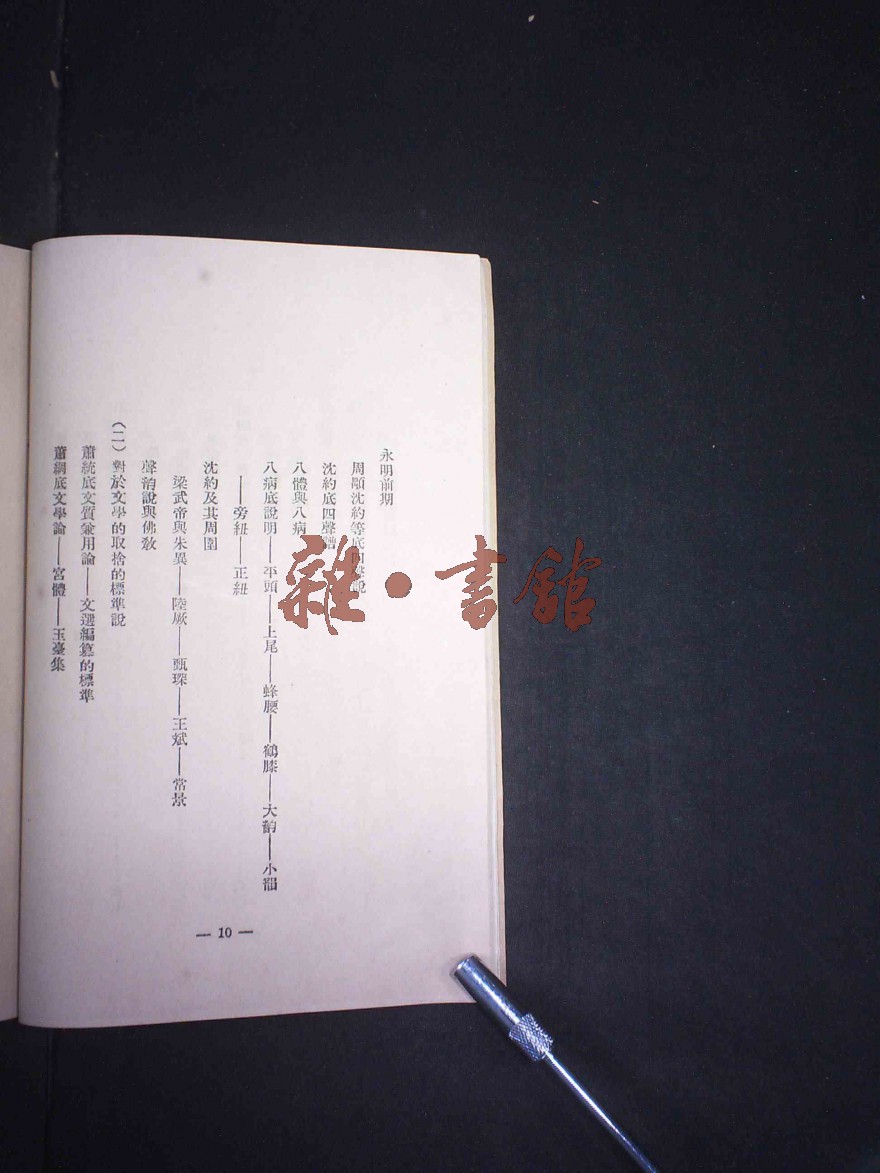 永明前期
周顒沈約等底四聲說
沈約底四聲譜
八體與八病
八病底說明——平頭——上尾——蜂腰——鶴膝——大韵——小韻
——旁紐——正紐
沈約及其周圍
梁武帝與朱异——陸厥——甄琛——王斌——常景
聲韵說與佛敎
(二)對於文學的取捨的標準說
蕭統底文質兼用論——文選編纂的標準
蕭綱底文學論——宮體——玉臺集
— 10 —
雜·書館